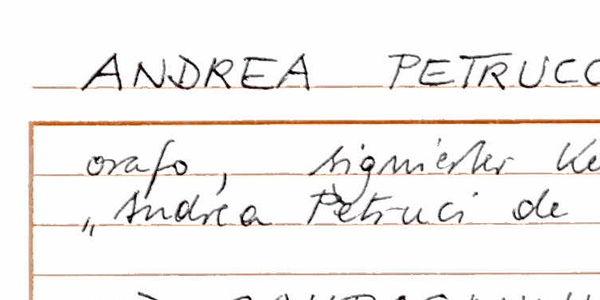 ANDREA PETRUCC
orafo, signierter Ke
„Andrea Petruci de